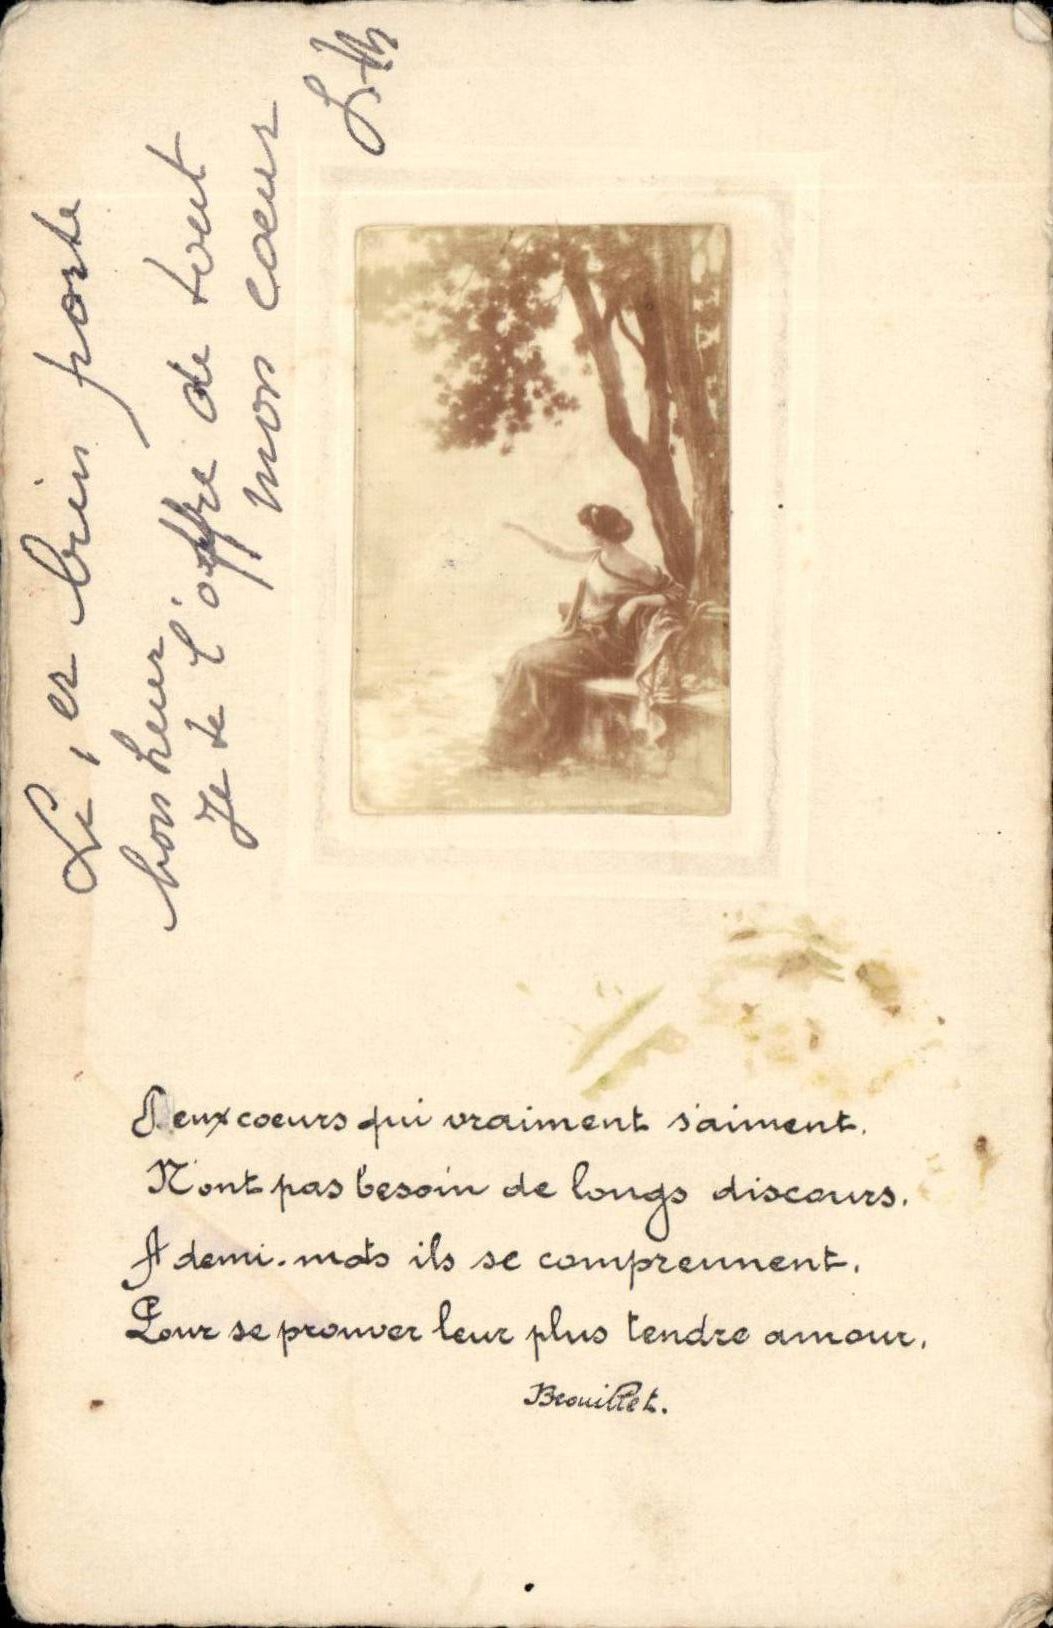 Le 1er brin porte
bonheur
Je te l'offre de tout
mon coeur
Deux coeurs qui vraiment s'aiment.
N'ont pas besoin de longs discours.
A demi-mots ils se comprennent.
Pour se prouver leur plus tendre amour.